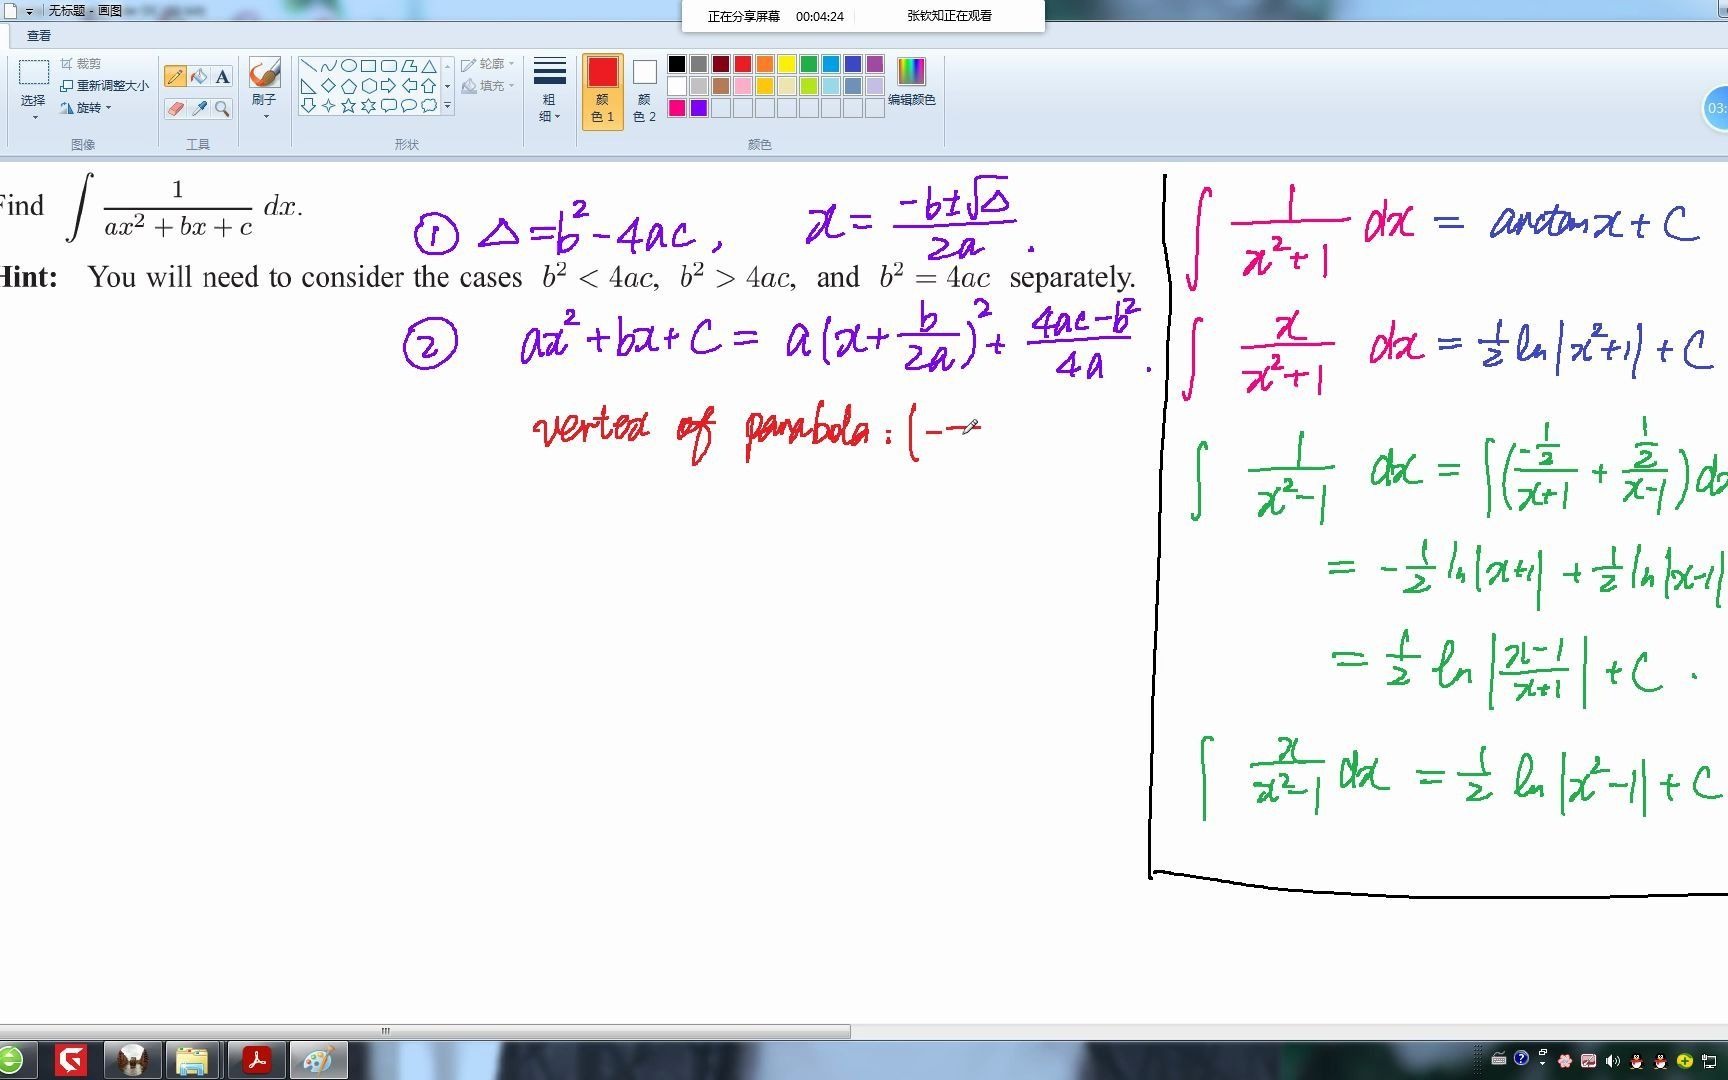 无标题 - 画图
正在分享屏幕 00:04:24 张钦知正在观看
查看
选择
裁剪
重新调整大小
旋转
图像
A
工具
刷子
形状
轮廓
填充
粗细
颜色 1
颜色 2
颜色
编辑颜色
03:
Find ∫ 1/(ax² + bx + c) dx.
① Δ = b² - 4ac , x = (-b ± √Δ)/2a .
Hint: You will need to consider the cases b² < 4ac, b² > 4ac, and b² = 4ac separately.
② ax² + bx + c = a(x + b/2a)² + (4ac - b²)/4a .
vertex of parabola : (-
∫ 1/(x²+1) dx = arctan x + C
∫ x/(x²+1) dx = ½ ln|x²+1| + C
∫ 1/(x²-1) dx = ∫ ( (-½)/(x+1) + (½)/(x-1) ) dx
= -½ ln|x+1| + ½ ln|x-1|
= ½ ln |(x-1)/(x+1)| + C .
∫ x/(x²-1) dx = ½ ln|x²-1| + C